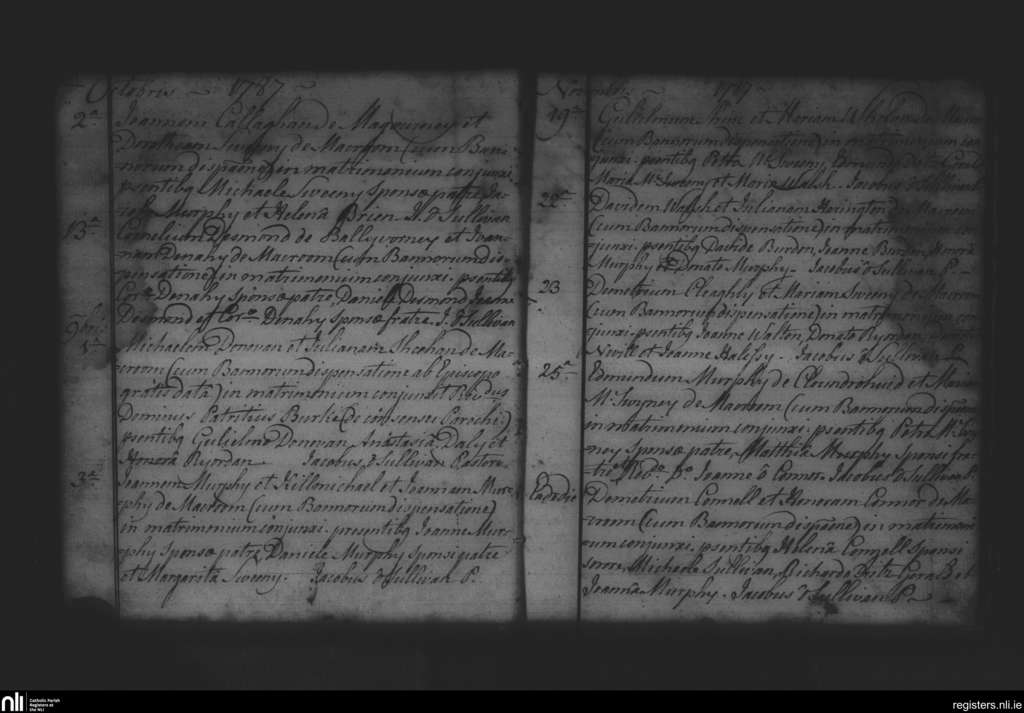 Octobris - 1787
2a Joannem Callaghan de Magourney et
Dorotheam Sweeny de Macroom (cum Ban-
norum dispãone) in matrimonium conjunxi
psentibq Michaele Sweeny Sponsæ patre, Da-
Murphy et Helenâ Brien. J. ô Sullivan
13a Cornelium Desmond de Ballyvorney et Joan-
nam Denahy de Macroom (cum Bannorum dis-
pensatione) in matrimonium conjunxi psentibq
Cor° Denahy Sponsæ patre, Daniele Desmond Joanne
Desmond et Cor° Denahy Sponsæ fratre J. ô Sullivan
9bris
1a Michaelem Donovan et Julianam Sheehan de Ma-
croom (cum Bannorum dispensatione ab Episcopo
gratis data) in matrimonium conjunxit Rdus
Dominus Patritius Burke (de consensu Parochi)
psentibq Gulielmo Donovan, Anastasia Daly et
Honorâ Ryordan Jacobus ô Sullivan Pastor
3a Joannem Murphy et Killonichael et Joannam Mur-
phy de Macroom (cum Bannorum dispensatione)
in matrimonium conjunxi. presentibq Joanne Mur-
phy Sponsæ patre, Daniele Murphy Sponsi patre
et Margaritâ Sweeny. Jacobus ô Sullivan P.
Novembris 1787
19a Gulielmum et Mariam de
(cum Bannorum dispensatione) in matrimonium con-
junxi. psentibq Petro Mc Sweeny, Edmundo
Maria Mc Sweeny et Maria Walsh. Jacobus ô Sullivan
22a Davidem Walsh et Julianam Harington de Macroom
(cum Bannorum dispensatione) in matrimonium con-
junxi. psentibq Davide Burdon, Joanne Burdon, Honorâ
Murphy et Donato Murphy - Jacobus ô Sullivan P. -
23 Demetrium Cleaghly et Mariam Sweeny de Macroom
(cum Bannorum dispensatione) in matrimonium con-
junxi. psentibq Joanne Walton, Donato Ryordan,
Nevill et Joanne Halessy. Jacobus ô Sullivan P
25a Edmundum Murphy de Cloundrohuid et Mariam
Mc Swyney de Macroom (cum Bannorum dispãone)
in matrimonium conjunxi. psentibq Petro Mc Swy-
ney Sponsæ patre, Matthia Murphy Sponsi fra-
tre Rdo Do Joanne ô Connor. Jacobus ô Sullivan P.
Eadm die Demetrium Connell et Honoram Connor de Ma-
croom (cum Bannorum dispãone) in matrimoni-
um conjunxi. psentibq Helenâ Connell Sponsi
soror, Michaele Sullivan, Richardo Fitz Gerald et
Joanna Murphy. Jacobus ô Sullivan P.
nli
Catholic Parish
Registers at
the NLI
registers.nli.ie